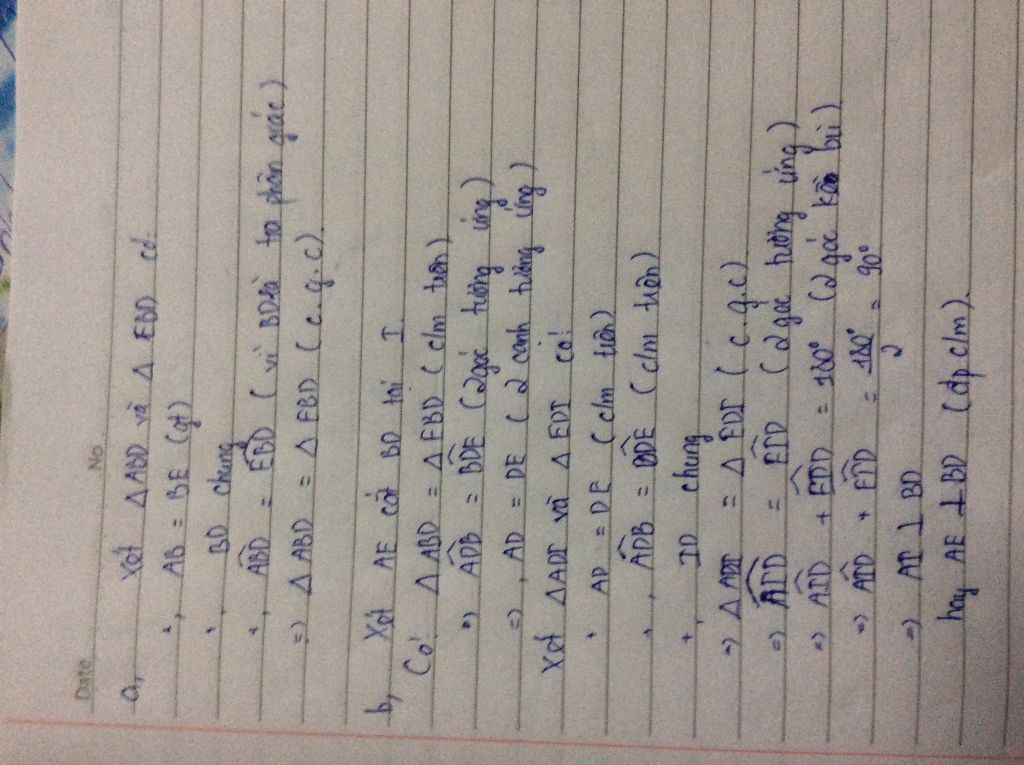 Date No
a, Xét ΔABD và ΔEBD có:
+, AB = BE (gt)
+, BD chung
+, ABD̂ = EBD̂ (vì BD là tia phân giác)
=> ΔABD = ΔEBD (c.g.c)
b, Xét AE cắt BD tại I
Có: ΔABD = ΔEBD (c/m trên)
=> ADB̂ = BDÊ (2 góc tương ứng)
=>, AD = DE (2 cạnh tương ứng)
Xét ΔADI và ΔEDI có:
+ AD = DE (c/m trên)
+, ADB̂ = BDÊ (c/m trên)
+, ID chung
=> ΔADI = ΔEDI (c.g.c)
=> AID̂ = EID̂ (2 góc tương ứng)
=> AID̂ + EID̂ = 180° (2 góc kề bù)
=> AID̂ + EID̂ = 180° / 2 = 90°
=> AI ⊥ BD
hay AE ⊥ BD (đpc/m)